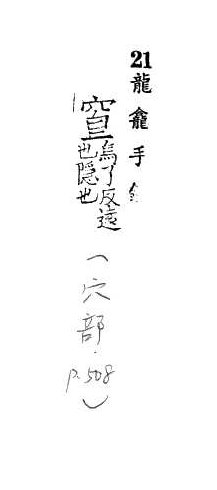 21
龍龕手
烏了反遠
也隠也
(穴部.
p.508)